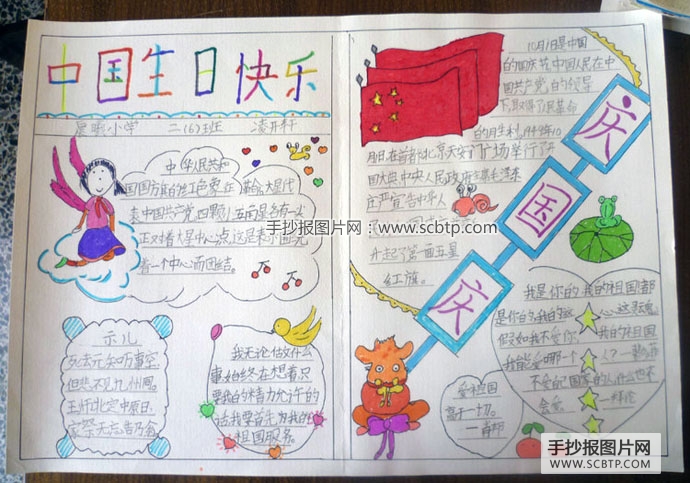 中国生日快乐
晨光小学 二(6)班
中华人民共和
国国旗的红色象征革命,大星代
表中国共产党,四颗小五角星各有一尖
正对着大星中心点,这是表示围绕
着一个中心而团结。
示儿
死去元知万事空,
但悲不见九州同。
王师北定中原日,
家祭无忘告乃翁
我无论做什么
事,始终在想着,只
要我的精力允许的
话,我要首先为我的
祖国服务。
10月1日是中国
的国庆节,中国人民在中
国共产党的领导
下,取得了革命
的胜利,1949年10
月1日在首都北京天安门广场举行了开
国大典,中央人民政府主席毛泽东
庄严宣告中华人
升起了第一面五星
红旗。
庆
国
庆
我是你的,我的祖国!都
是你的,我的
假如我不爱你,我的祖国
我能爱哪一个人?
不爱自己国家的人,什么也不
会爱。—拜伦
爱祖国
高于一切。
—肖邦
手抄报图片网:www.scbtp.com
手抄报图片网
WWW.SCBTP.COM